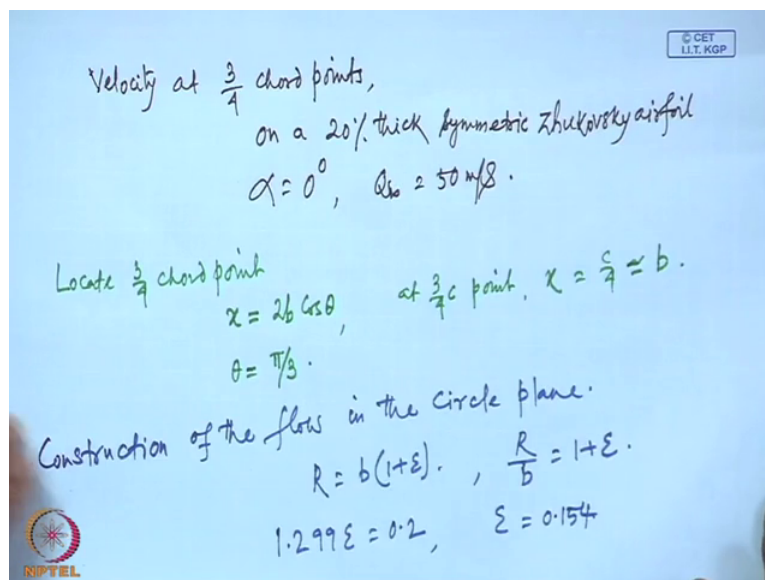 © CET
I.I.T. KGP
Velocity at 3/4 chord points,
on a 20% thick symmetric Zhukovsky airfoil
α = 0°, Q∞ = 50 m/s.
Locate 3/4 chord point
x = 2b Cosθ, at 3/4 c point, x = c/4 ≃ b.
θ = π/3.
Construction of the flow in the circle plane.
R = b(1+ε). , R/b = 1+ε.
1.299ε = 0.2, ε = 0.154
NPTEL